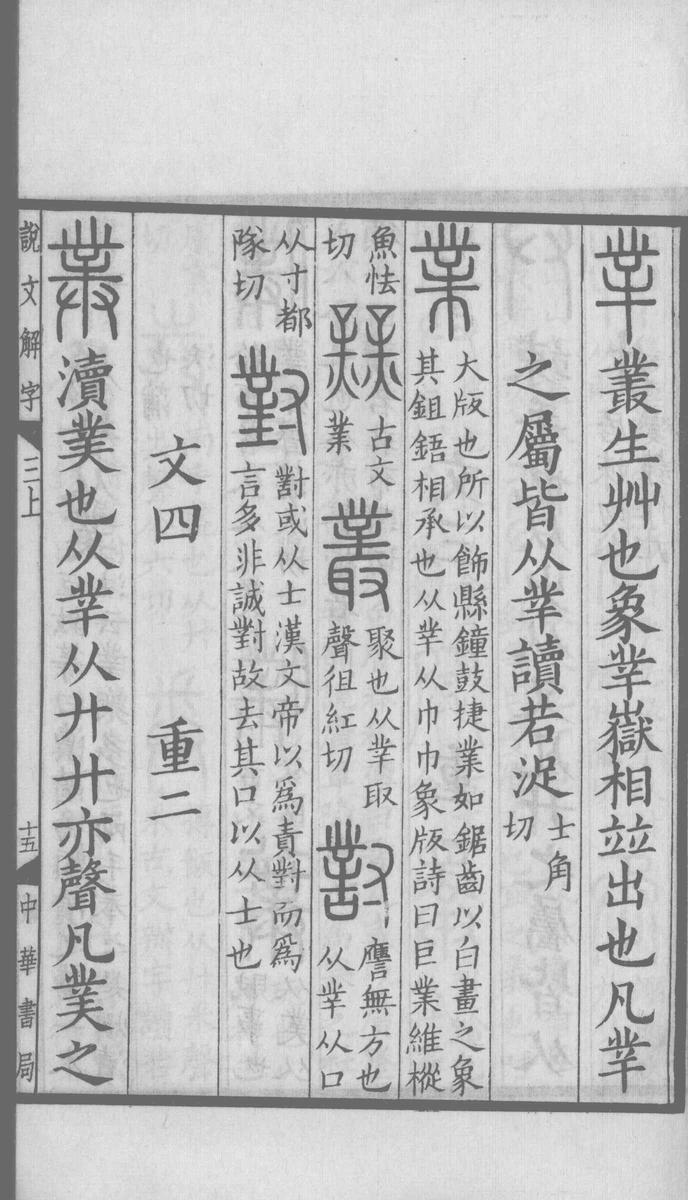 丵 叢生艸也象丵嶽相竝出也凡丵
之屬皆从丵讀若浞 士角
切
業 大版也所以飾縣鐘鼓捷業如鋸齒以白畫之象
其鉏鋙相承也从丵从巾巾象版詩曰巨業維樅
魚怯
切
古文
業
叢 聚也从丵取
聲徂紅切
對 譍無方也
从丵从口
从寸都
隊切
對 對或从士漢文帝以爲責對而爲
言多非誠對故去其口以从士也
文四 重二
菐 瀆菐也从丵从廾廾亦聲凡菐之
說文解字 三上 十五 中華書局